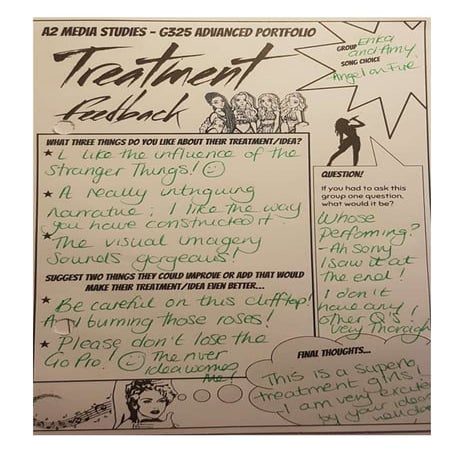 A2 MEDIA STUDIES – G325 ADVANCED PORTFOLIO
Treatment
Feedback
GROUP Erika
and Amy.
SONG CHOICE
Angel on Fire
WHAT THREE THINGS DO YOU LIKE ABOUT THEIR TREATMENT/IDEA?
★ I like the influence of the
Stranger Things! ☺
★ A really intriguing
narrative; I like the way
you have constructed it.
★ The visual imagery
Sounds gorgeous!
SUGGEST TWO THINGS THEY COULD IMPROVE OR ADD THAT WOULD
MAKE THEIR TREATMENT/IDEA EVEN BETTER...
★ Be careful on this clifftop!
burning those roses!
★ Please don't lose the
Go Pro! ☺ The river
idea worries
me!
QUESTION!
If you had to ask this
group one question,
what would it be?
Whose
Performing?
- Ah Sorry
I saw it at
the end!
I don't
have any
other Q's!
Very Thorough
FINAL THOUGHTS...
This is a superb
treatment girls!
I am very excited
by your ideas